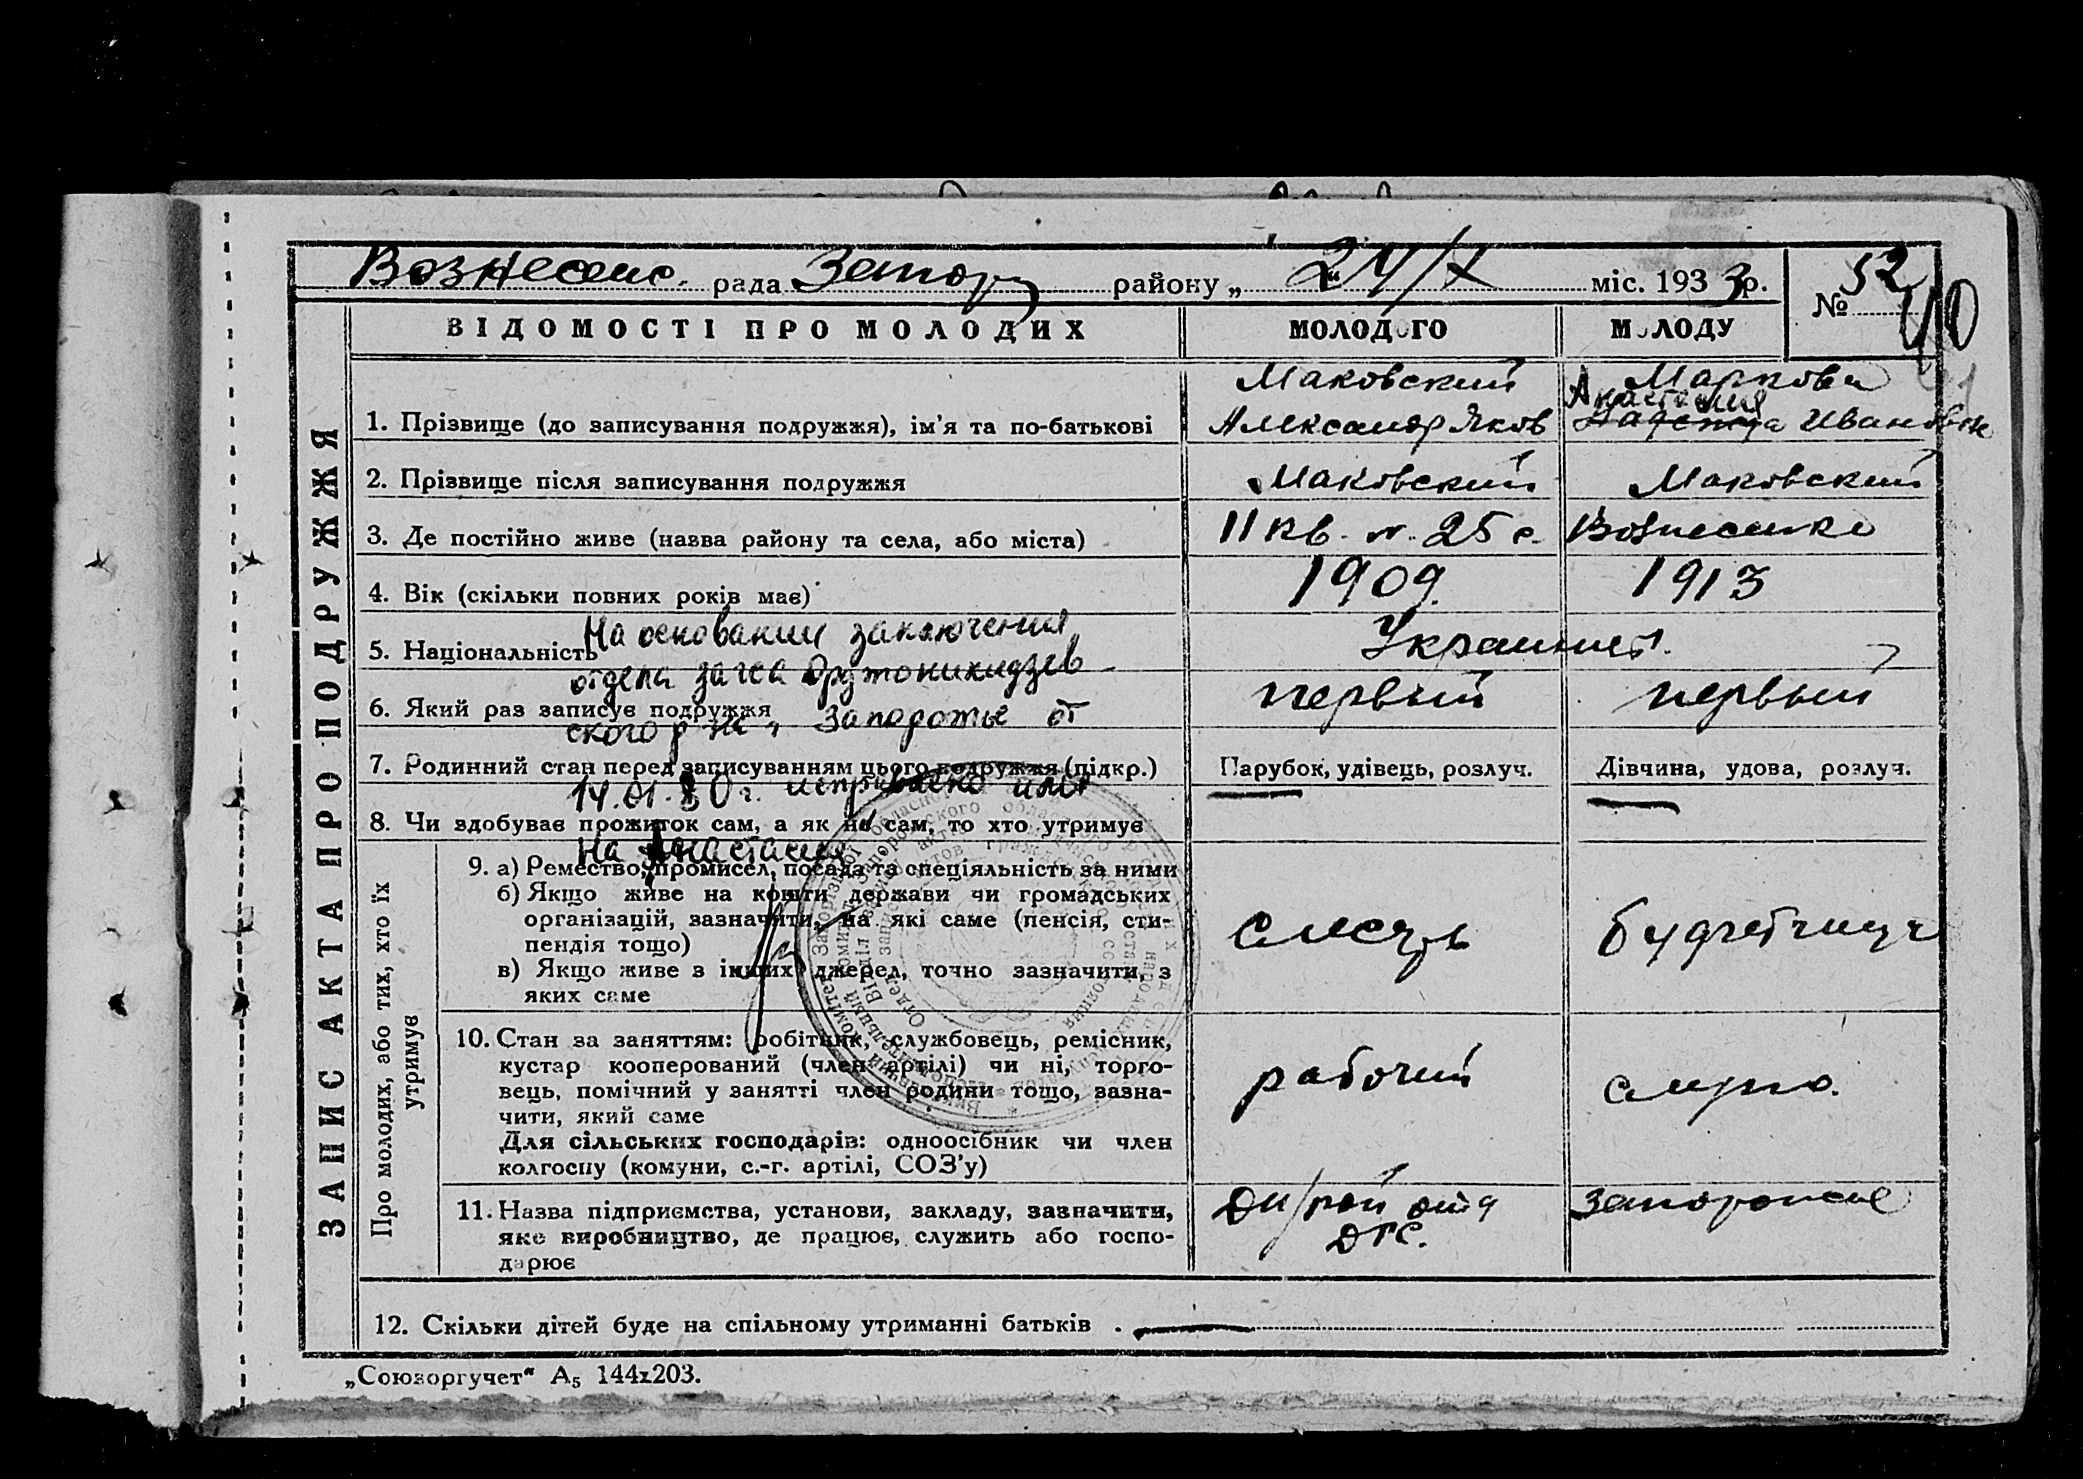 Вознесенс. рада Запор району „ 24/X міс. 1933р.
№ 52
40
ЗАПИС АКТА ПРО ПОДРУЖЖЯ
ВІДОМОСТІ ПРО МОЛОДИХ
МОЛОДОГО
МОЛОДУ
1. Прізвище (до записування подружжя), ім'я та по-батькові
Маковский
Александр Яков
Маркова
Анастасия
Надежда Ивановн
2. Прізвище після записування подружжя
Маковский
Маковский
3. Де постійно живе (назва району та села, або міста)
11 кв. н. 25 с.
Вознесенка
4. Вік (скільки повних років має)
1909
1913
5. Національність
Украинцы
6. Який раз записує подружжя
первый
первый
7. Родинний стан перед записуванням цього подружжя (підкр.)
Парубок, удівець, розлуч.
Дівчина, удова, розлуч.
8. Чи здобуває прожиток сам, а як не сам, то хто утримує
На основании заключения
отдела загса Орджоникидзев
ского р-на г. Запорожье от
14.01.80 г. исправлено имя
на Анастасия
Про молодих, або тих, хто їх утримує
9. а) Ремество, промисел, посада та спеціяльність за ними
б) Якщо живе на кошти держави чи громадських
організацій, зазначити, на які саме (пенсія, сти-
пендія тощо)
в) Якщо живе з інших джерел, точно зазначити, з
яких саме
слесарь
10. Стан за заняттям: робітник, службовець, ремісник,
кустар кооперований (член артілі) чи ні, торго-
вець, помічний у занятті член родини тощо, зазна-
чити, який саме
Для сільських господарів: одноосібник чи член
колгоспу (комуни, с.-г. артілі, СОЗ'у)
рабочий
11. Назва підприємства, установи, закладу, зазначити,
яке виробництво, де працює, служить або госпо-
дарює
ДГС.
Запорожье
12. Скільки дітей буде на спільному утриманні батьків .
„Союзоргучет“ А5 144х203.